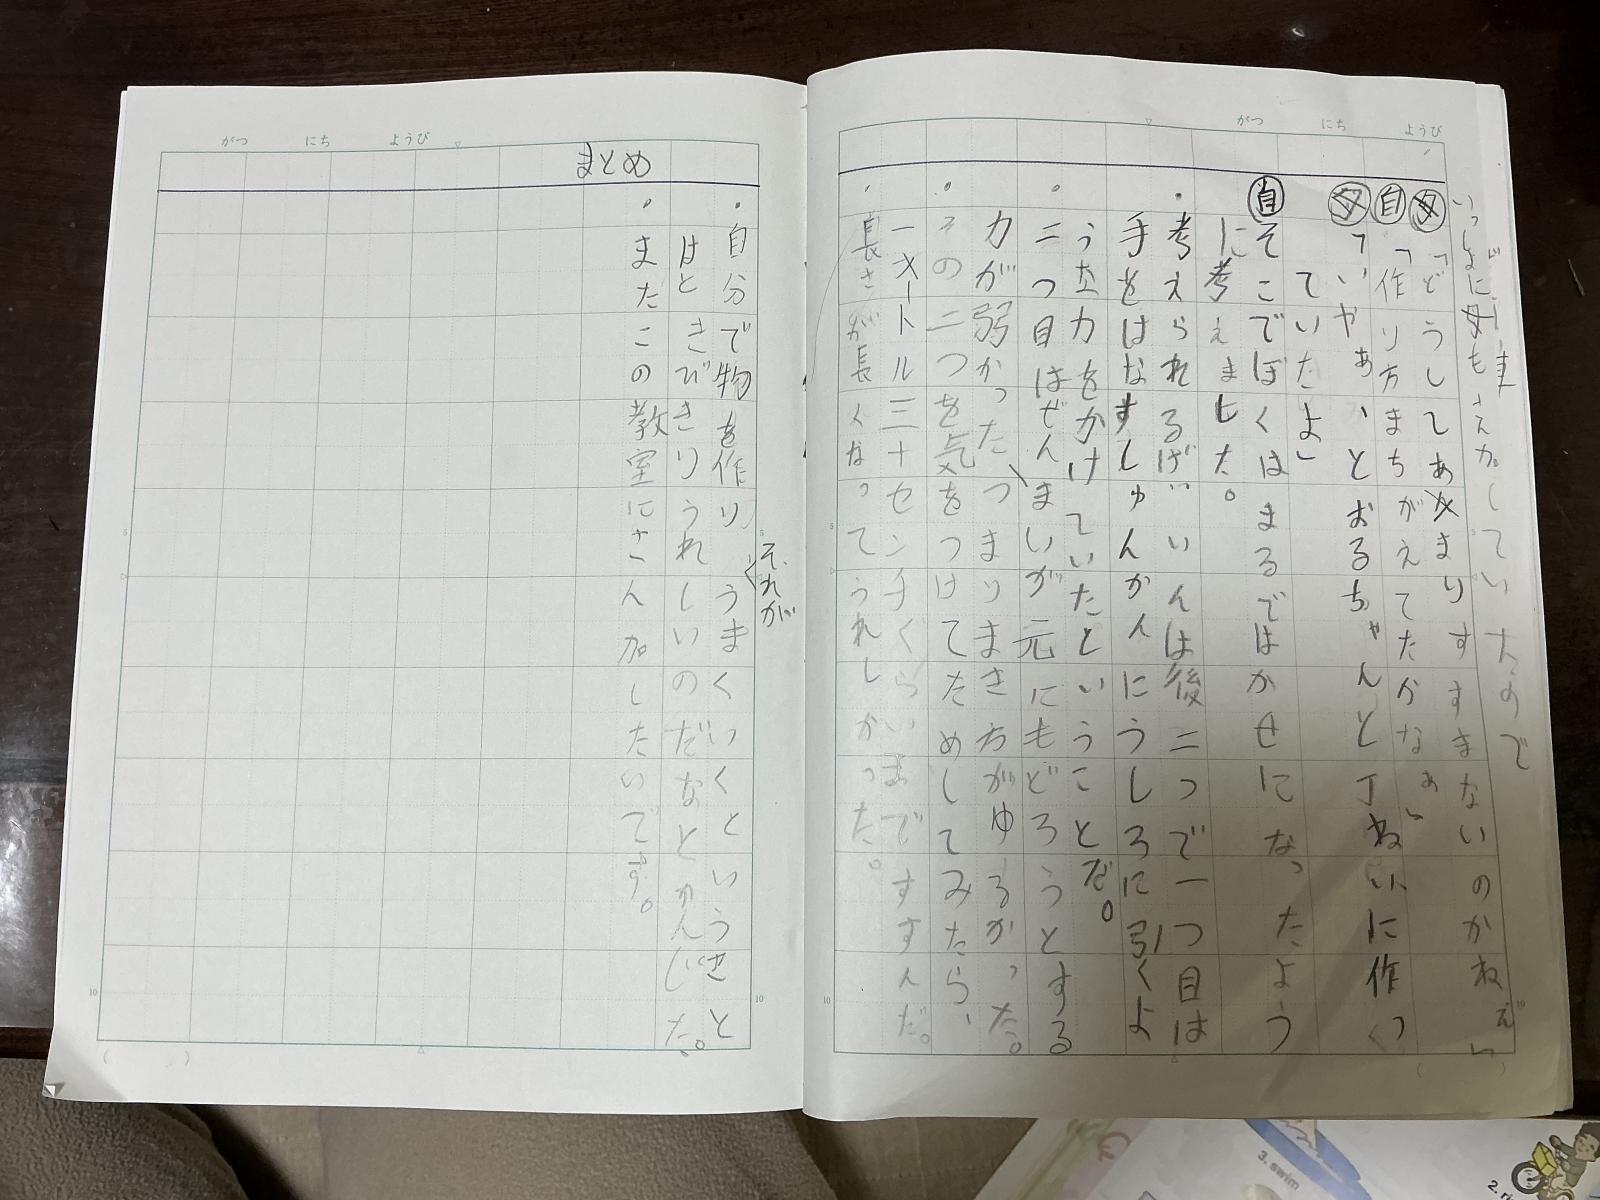 がつ にち ようび
いっしょに母も
父「どうしてあまりすすまないのかねぇ」
自「作り方まちがえてたかなぁ」
父「いやぁ、とおるちゃんと丁ねいに作っ
ていたよ」
自そこでぼくはまるではかせになったよう
に考えました。
・考えられるげんいんは後二つで一つ目は
手をはなすしゅんかんにうしろに引くよ
う力をかけていたということだ。
・二つ目はぜんまいが元にもどろうとする
力が弱かった、つまりまき方がゆるかった。
・その二つを気をつけてためしてみたら、
一メートル三十センチくらいまですすんだ。
・長さが長くなってうれしかった。
がつ にち ようび
まとめ
・自分で物を作り、それがうまくいくというせと
はと きびきりうれしいのだなとかんじた。
・またこの教室にさん加したいです。
5
10
5
10
3. swim